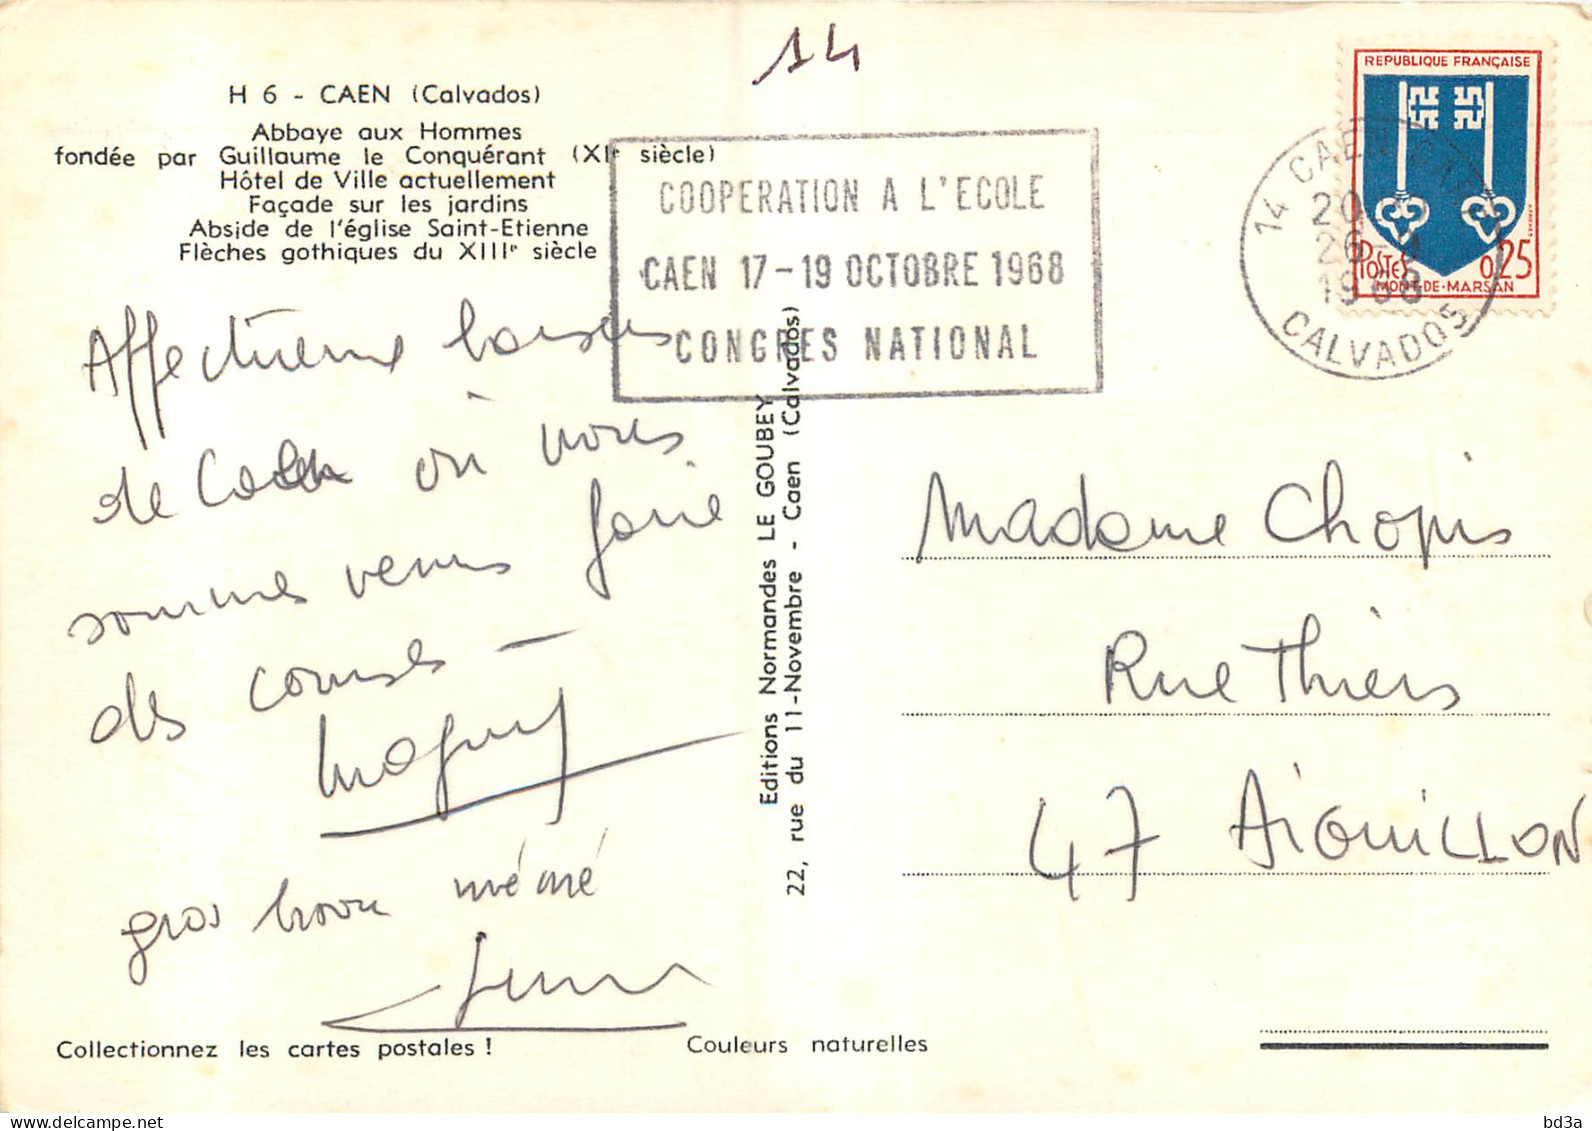 14
H 6 - CAEN (Calvados)
Abbaye aux Hommes
fondée par Guillaume le Conquérant (XIe siècle)
Hôtel de Ville actuellement
Façade sur les jardins
Abside de l'église Saint-Etienne
Flèches gothiques du XIIIe siècle
COOPERATION A L'ECOLE
CAEN 17-19 OCTOBRE 1968
CONGRES NATIONAL
14 CAEN GARE
20
26-
1968
CALVADOS
REPUBLIQUE FRANÇAISE
POSTES 0,25
MONT-DE-MARSAN
Affectueux baisers
de Caen où nous
sommes venus faire
des courses -
Maguy
gros bisou mémé
Editions Normandes LE GOUBEY
22, rue du 11-Novembre - Caen (Calvados)
Madame Chopis
Rue Thiers
47 AiGuiLLON
Collectionnez les cartes postales !
Couleurs naturelles
bd3a